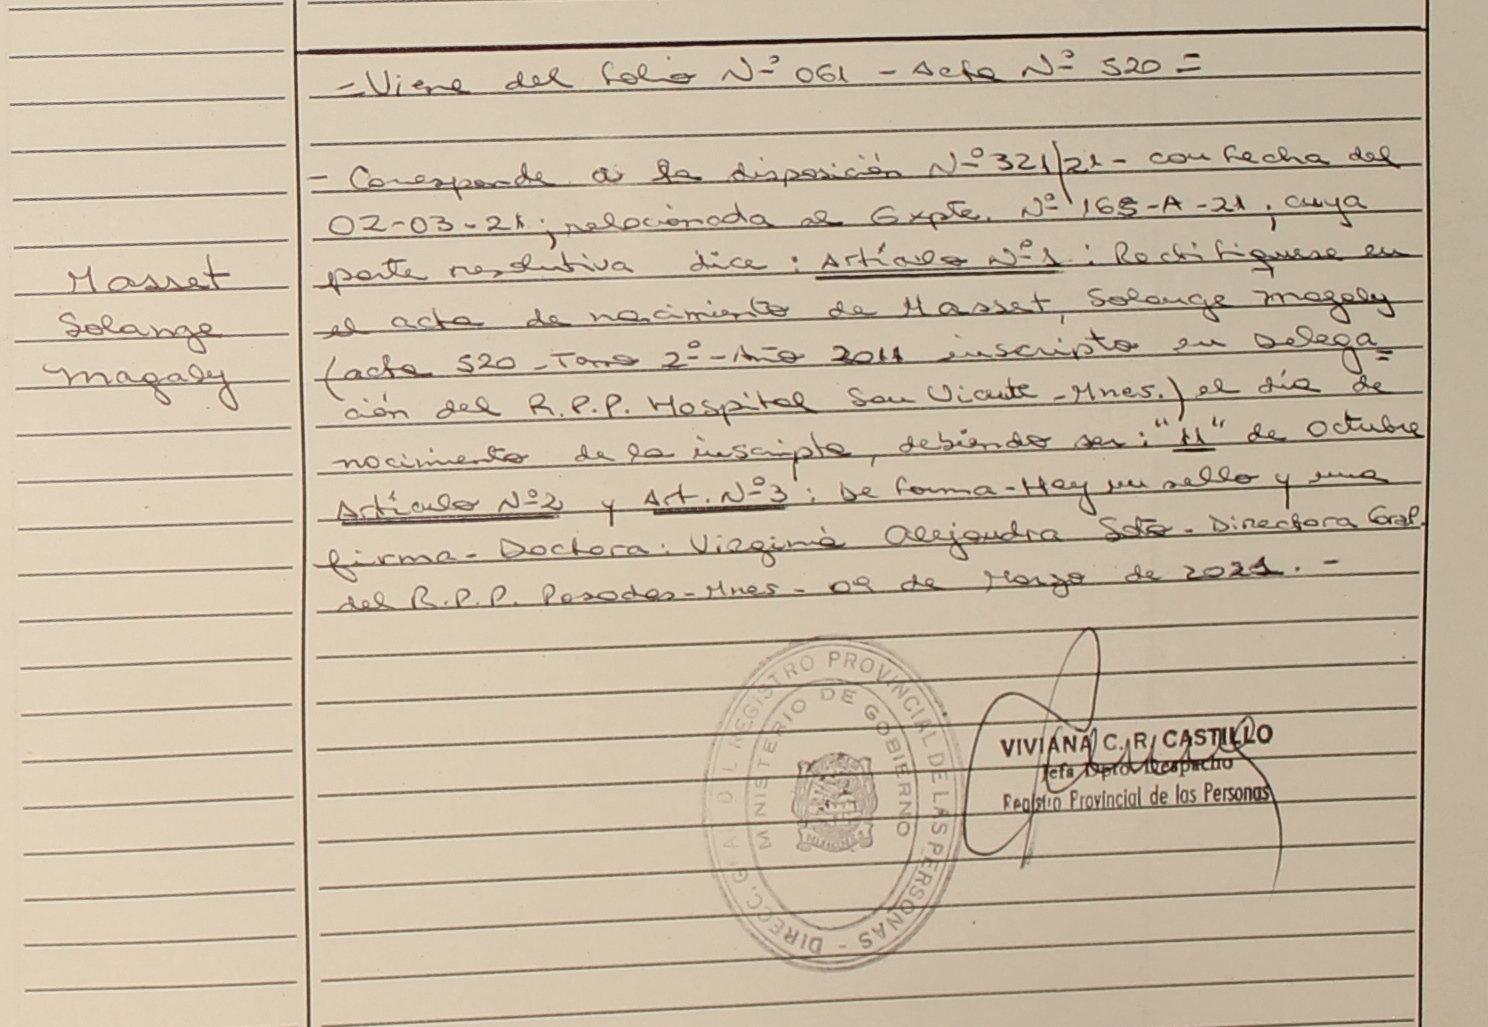 = Viene del folio Nº 061 - Acta Nº 520 =
- Corresponde a la disposición Nº 321/21 - con fecha del
02-03-21; relacionada al Expte. Nº 165-A-21, cuya
parte resolutiva dice: Artículo Nº 1: Rectifiquese en
Masset
Solange
Magaly
el acta de nacimiento de Masset, Solange Magaly
(acta 520 - Tomo 2º - Año 2011 inscripto en Delega=
ción del R.P.P. Hospital San Vicente - Mnes.) el día de
nacimiento de la inscripta, debiendo ser: "11" de octubre
Artículo Nº 2 y Art. Nº 3: De forma - Hay un sello y una
firma - Doctora: Virginia Alejandra Soto - Directora Gral.
del R.P.P. Posadas - Mnes - 09 de Marzo de 2021. -
DIRECC. GRAL DEL REGISTRO PROVINCIAL DE LAS PERSONAS -
MINISTERIO DE GOBIERNO
VIVIANA C. R. CASTILLO
Jefa Dpto. Despacho
Registro Provincial de las Personas